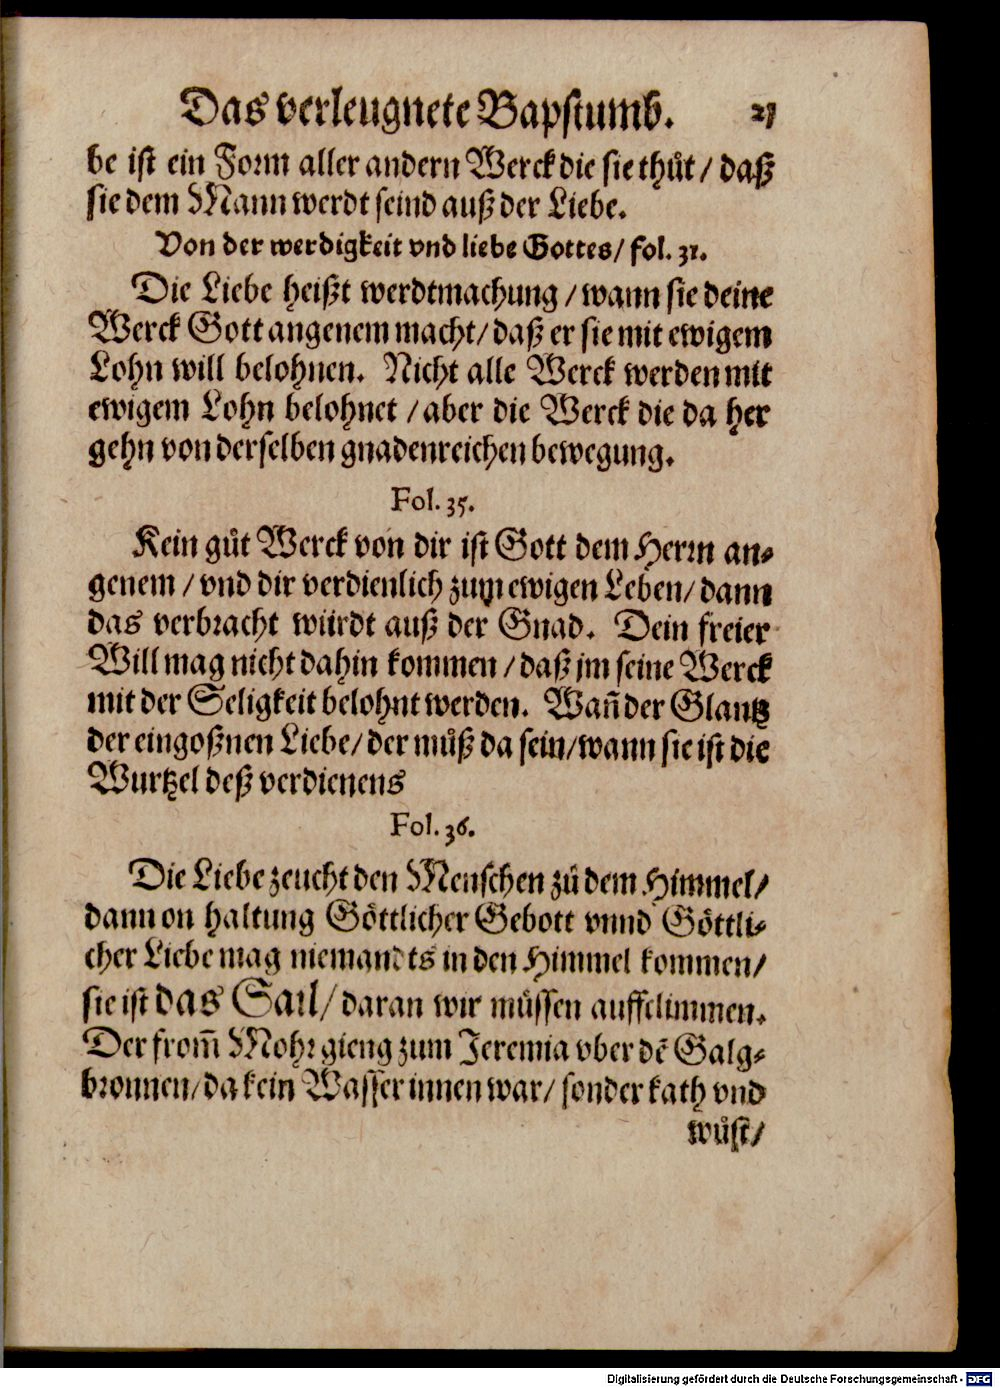 Das verleugnete Bapstumb. 27
be ist ein Form aller andern Werck die sie thůt / daß
sie dem Mann werdt seind auß der Liebe.
Von der werdigkeit vnd liebe Gottes / fol. 31.
Die Liebe heißt werdtmachung / wann sie deine
Werck Gott angenem macht / daß er sie mit ewigem
Lohn will belohnen. Nicht alle Werck werden mit
ewigem Lohn belohnet / aber die Werck die da her
gehn von derselben gnadenreichen bewegung.
Fol. 35.
Kein gůt Werck von dir ist Gott dem Herrn an-
genem / vnd dir verdienlich zum ewigen Leben / dann
das verbracht würdt auß der Gnad. Dein freier
Will mag nicht dahin kommen / daß jm seine Werck
mit der Seligkeit belohnt werden. Wañ der Glantz
der eingoßnen Liebe / der můß da sein / wann sie ist die
Wurtzel deß verdienens
Fol. 36.
Die Liebe zeucht den Menschen zů dem Himmel /
dann on haltung Göttlicher Gebott vnnd Göttli-
cher Liebe mag niemandts in den Himmel kommen /
sie ist das Sail / daran wir müssen auffclimmen.
Der from̃ Mohr gieng zum Jeremia vber dẽ Galg-
bronnen / da kein Wasser innen war / sonder kath vnd
wůst /
Digitalisierung gefördert durch die Deutsche Forschungsgemeinschaft - DFG